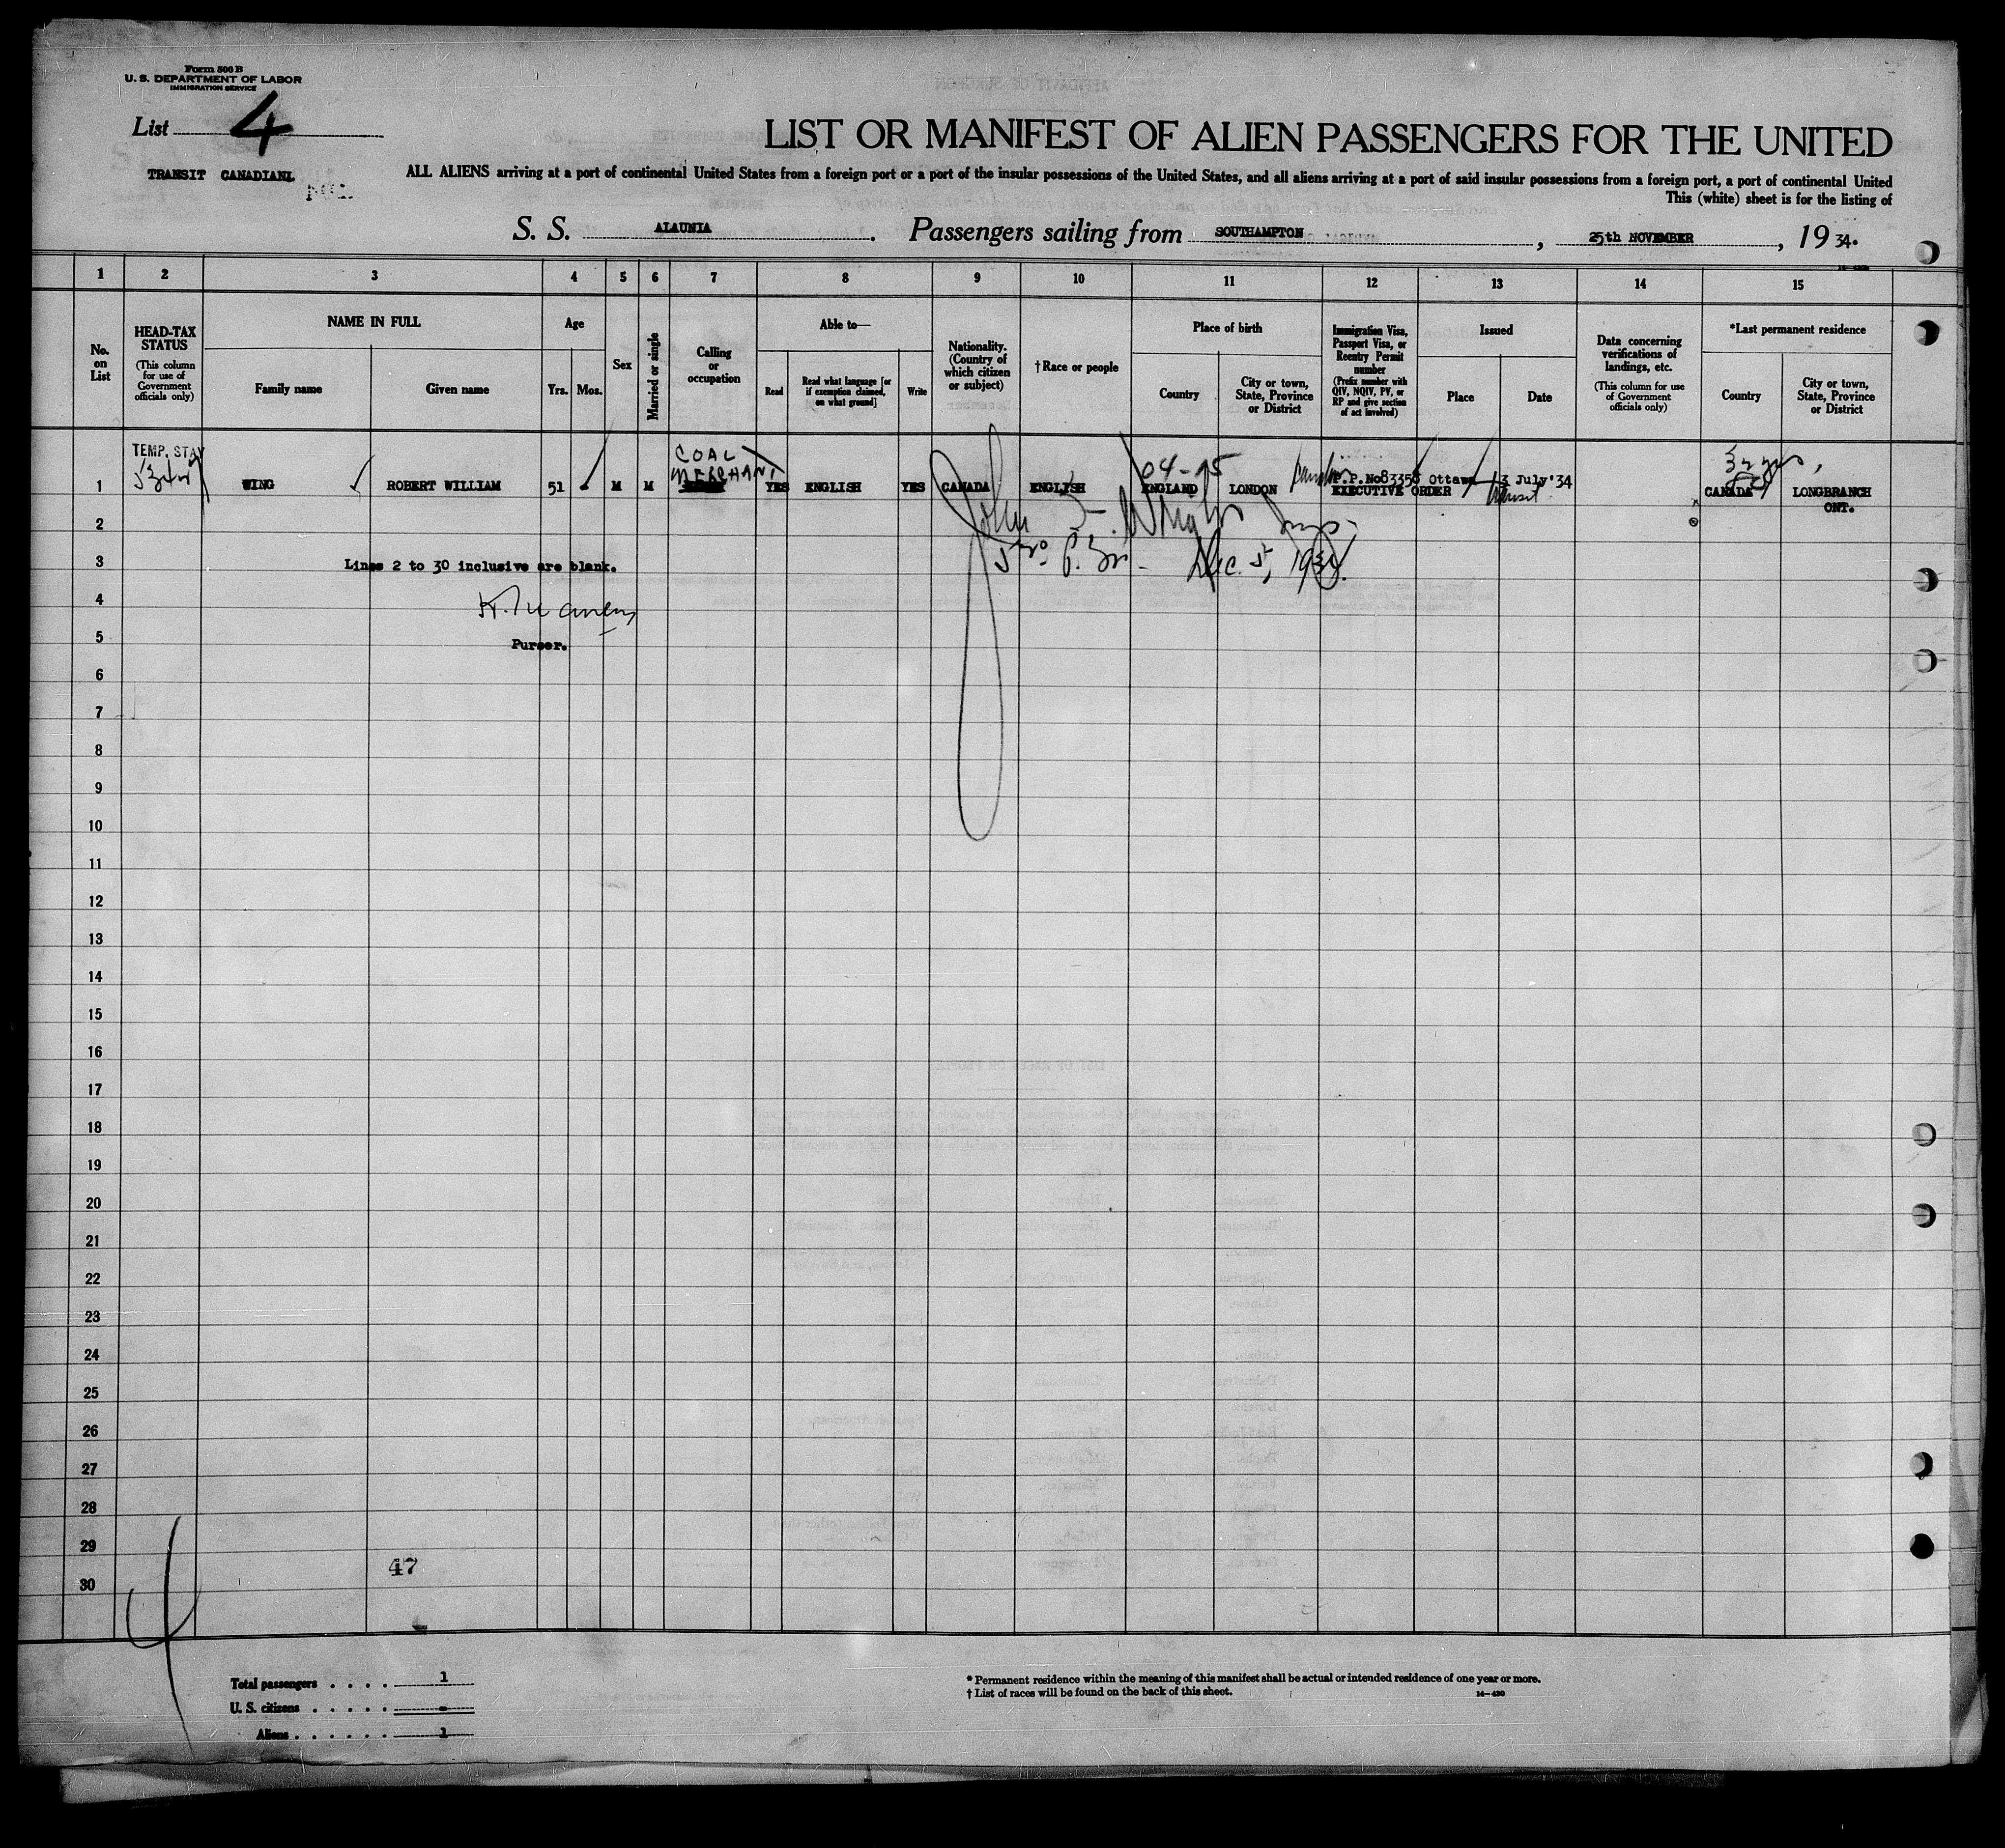 Form 500 B
U. S. DEPARTMENT OF LABOR
IMMIGRATION SERVICE
List 4
TRANSIT CANADIAN
LIST OR MANIFEST OF ALIEN PASSENGERS FOR THE UNITED
ALL ALIENS arriving at a port of continental United States from a foreign port or a port of the insular possessions of the United States, and all aliens arriving at a port of said insular possessions from a foreign port, a port of continental United
This (white) sheet is for the listing of
S. S. ALAUNIA. Passengers sailing from SOUTHAMPTON, 25th NOVEMBER, 19 34.
1 2 3 4 5 6 7 8 9 10 11 12 13 14 15
No. on List
HEAD-TAX STATUS
(This column for use of Government officials only)
NAME IN FULL
Family name
Given name
Age
Yrs. Mos.
Sex
Married or single
Calling or occupation
Able to—
Read
Read what language [or if exemption claimed, on what ground]
Write
Nationality. (Country of which citizen or subject)
†Race or people
Place of birth
Country
City or town, State, Province or District
Immigration Visa, Passport Visa, or Reentry Permit number
(Prefix number with QIV, NQIV, PV, or RP and give section of act involved)
Issued
Place
Date
Data concerning verifications of landings, etc.
(This column for use of Government officials only)
*Last permanent residence
Country
City or town, State, Province or District
TEMP. STAY
COAL
MERCHANT
04-15
1 WING ROBERT WILLIAM 51 - M M YES ENGLISH YES CANADA ENGLISH ENGLAND LONDON P.P.No83358 Ottawa 13 July '34 CANADA LONGBRANCH
EXECUTIVE ORDER transit ONT.
2
John Wright Insp.
Dec. 5, 1934.
3 Lines 2 to 30 inclusive are blank.
4
5 Purser.
6
7
8
9
10
11
12
13
14
15
16
17
18
19
20
21
22
23
24
25
26
27
28
29
47
30
Total passengers . . . . 1
U. S. citizens . . . . . -
Aliens . . . . . . 1
* Permanent residence within the meaning of this manifest shall be actual or intended residence of one year or more.
† List of races will be found on the back of this sheet.
14—430